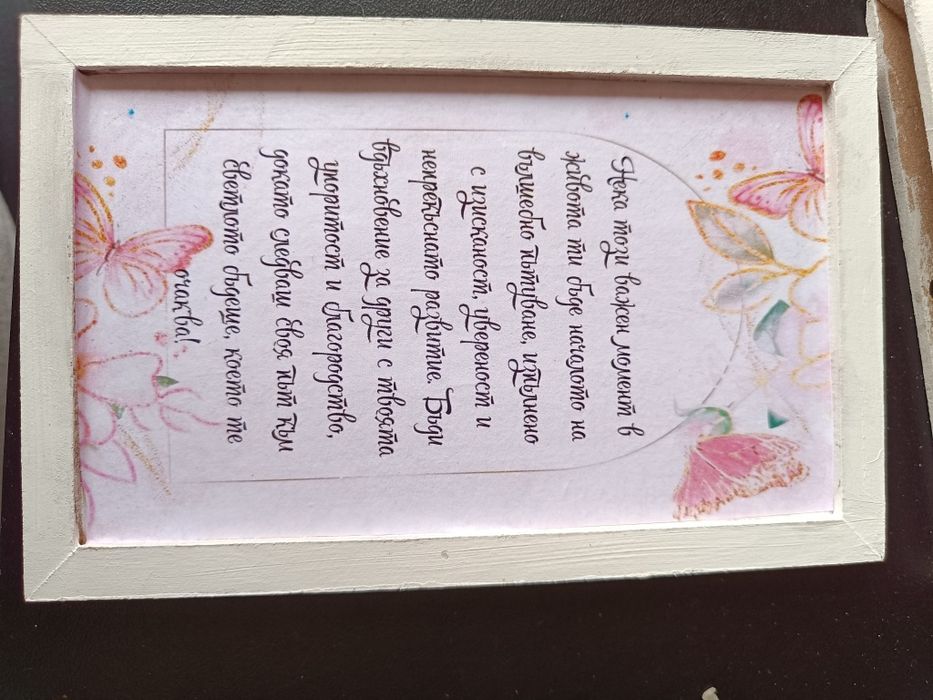 Нека този важен момент в
живота ти бъде началото на
вълшебно пътуване, изпълнено
с изисканост, увереност и
непрекъснато развитие. Бъди
вдъхновение за други с твоята
упоритост и благородство,
докато следваш своя път към
светлото бъдеще, което те
очаква!